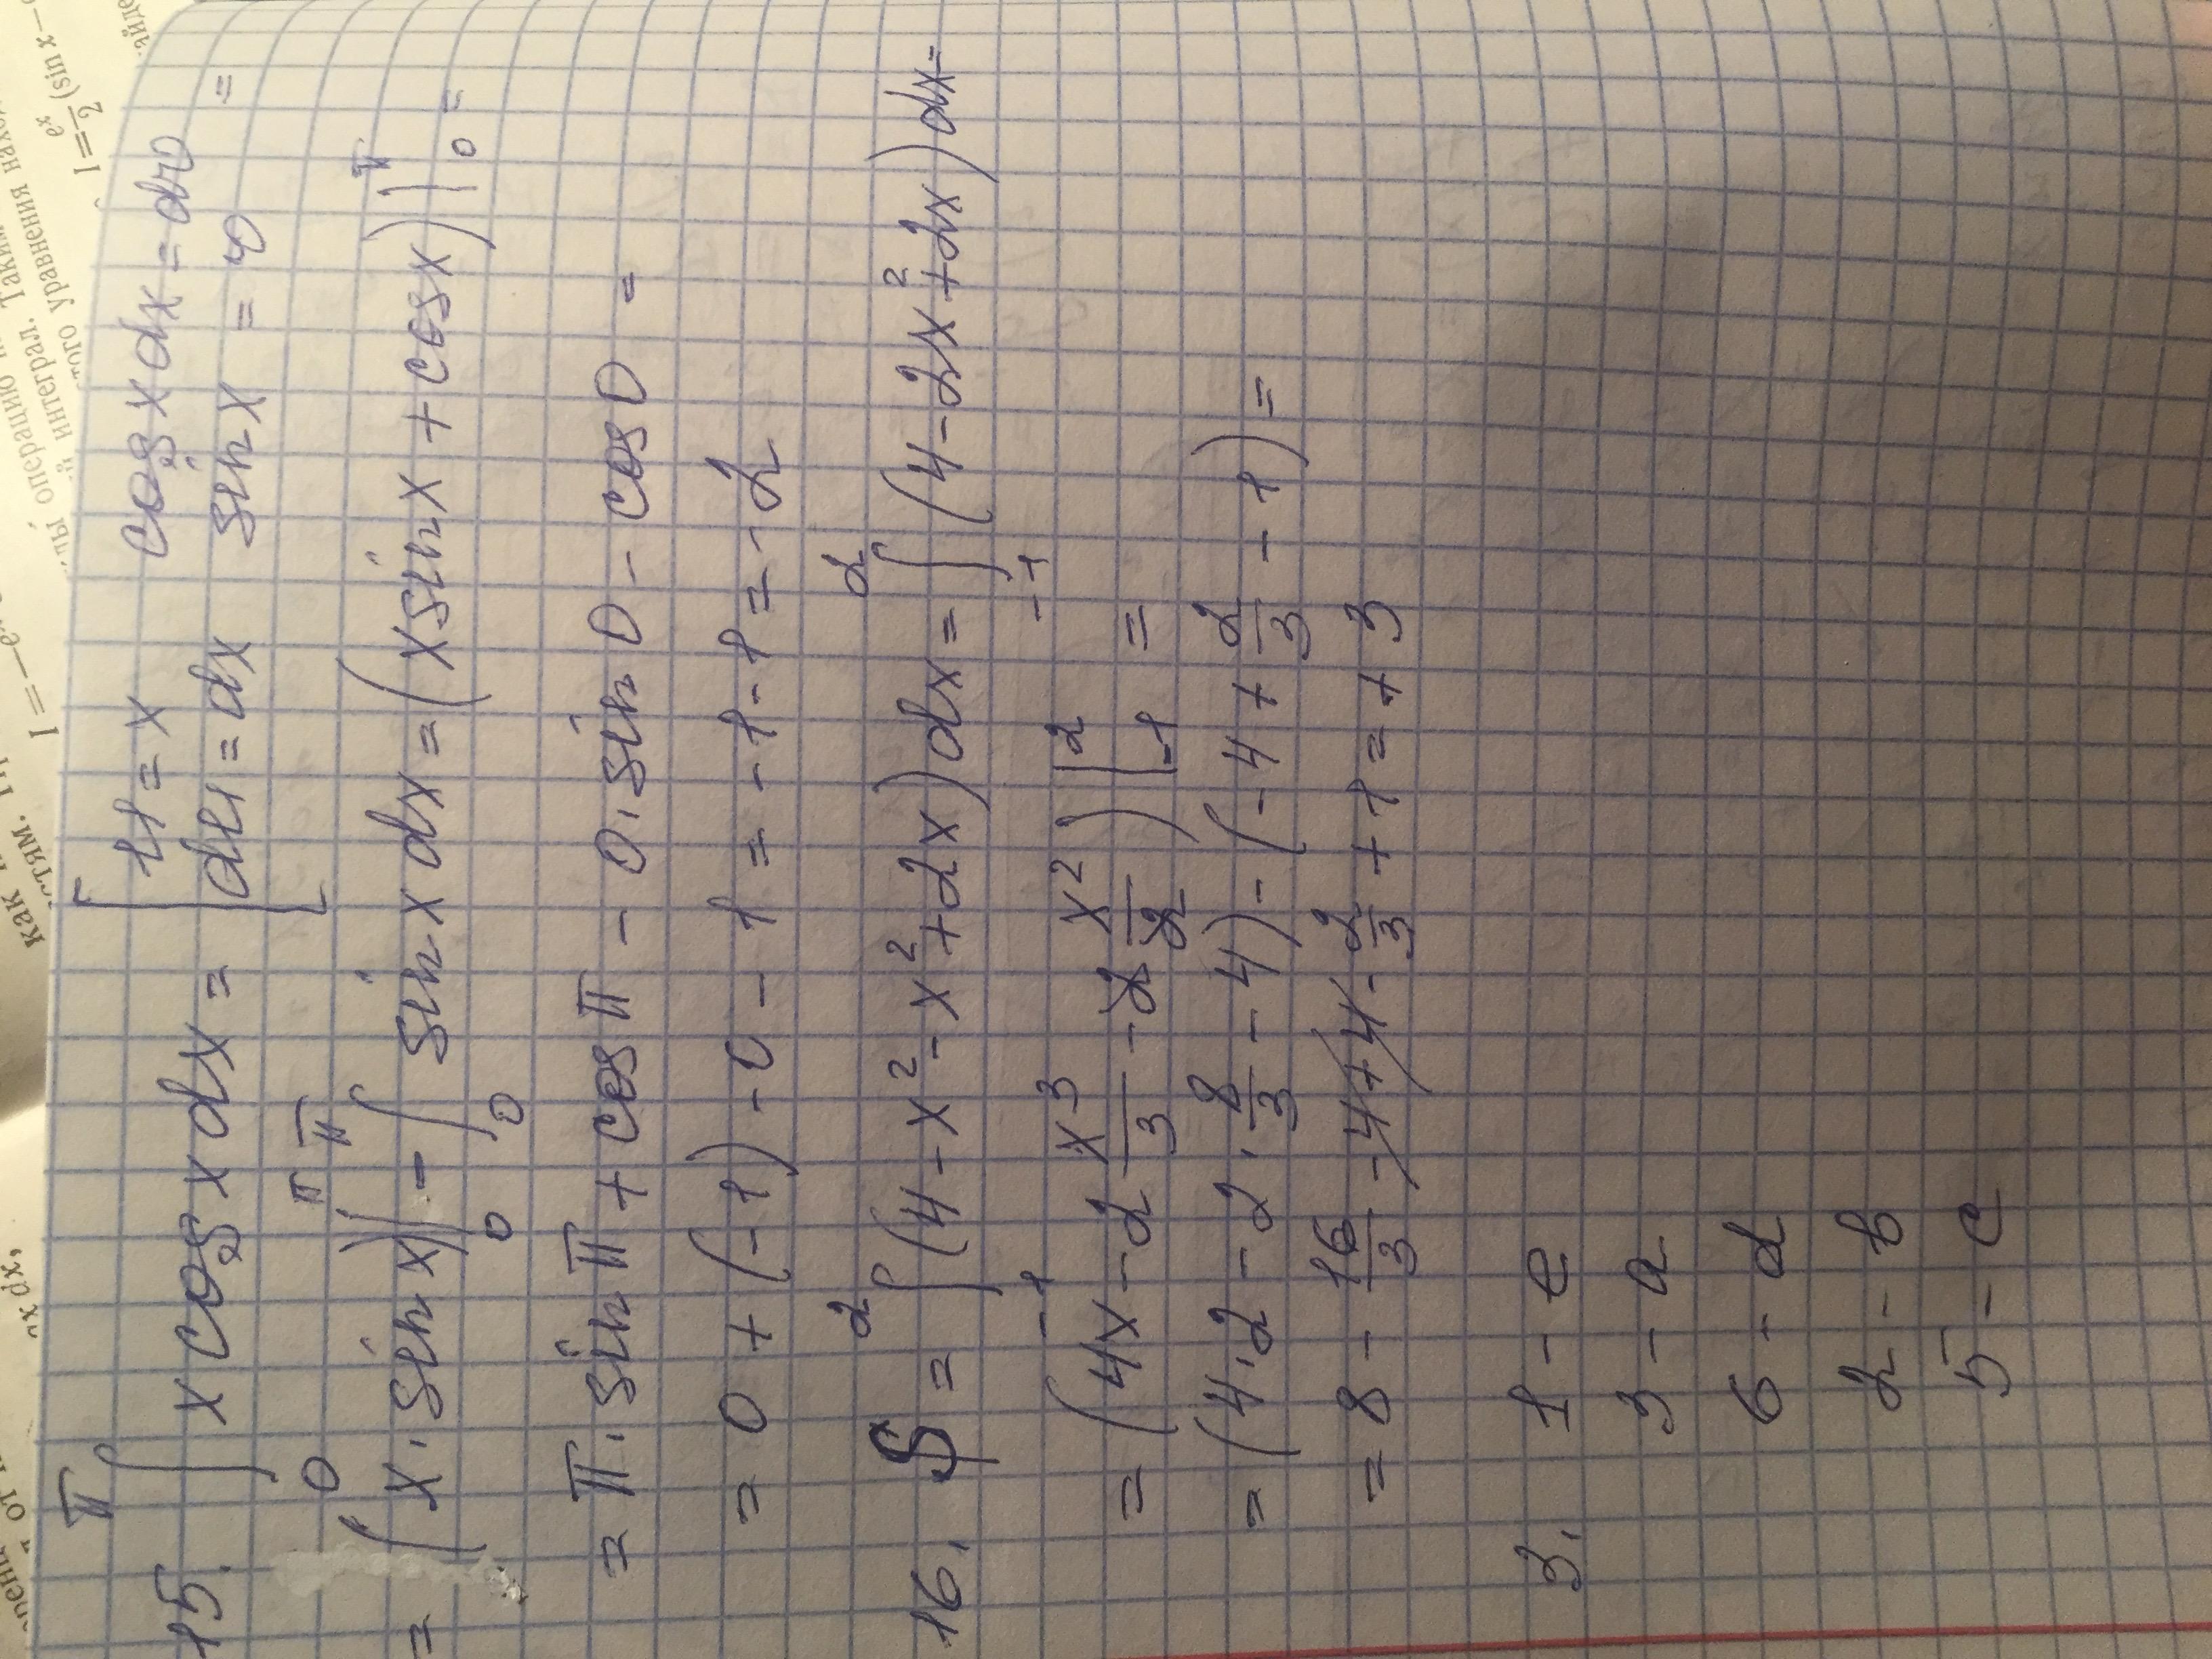 15. ∫₀^π x cos x dx = [ u = x   cos x dx = dv
du = dx   sin x = v =
= (x · sin x)|₀^π − ∫₀^π sin x dx = (x sin x + cos x)|₀^π =
= π · sin π + cos π − 0 · sin 0 − cos 0 =
= 0 + (−1) − 0 − 1 = −1 − 1 = −2
16. S = ∫₋₁² (4 − x² − x² + 2x) dx = ∫₋₁² (4 − 2x² + 2x) dx =
= (4x − 2 x³/3 − 2 x²/2)|₋₁² =
= (4·2 − 2 · 8/3 − 4) − (−4 + 2/3 − 1) =
= 8 − 16/3 − 4 + 4 − 2/3 + 1 = + 3
3. 1 − e
3 − a
6 − d
2 − b
5 − c
как
I = −e
интеграл. Таким
операцию
уравнения
I = eˣ/2 (sin x −